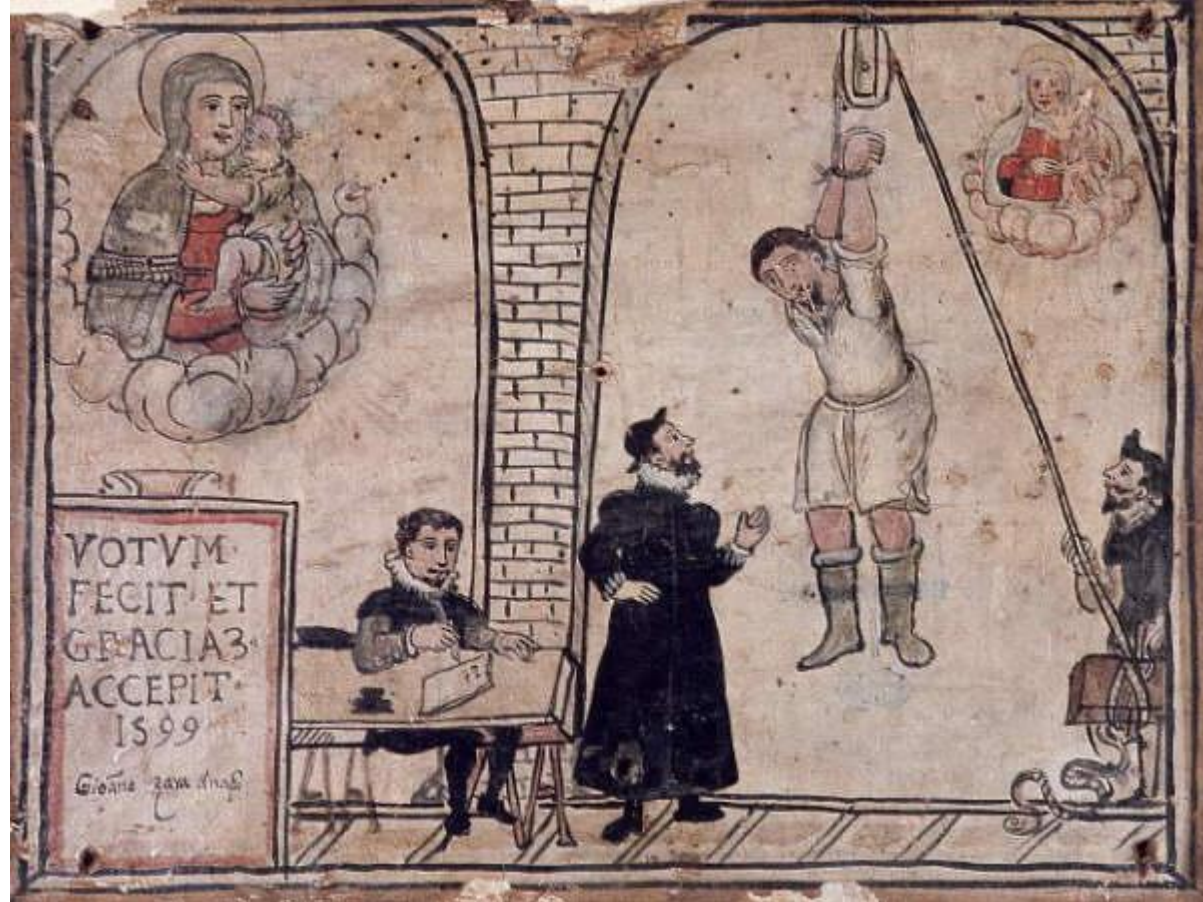 VOTVM·
FECIT·ET
GRACIA3·
ACCEPIT·
1599
Gioāno zara